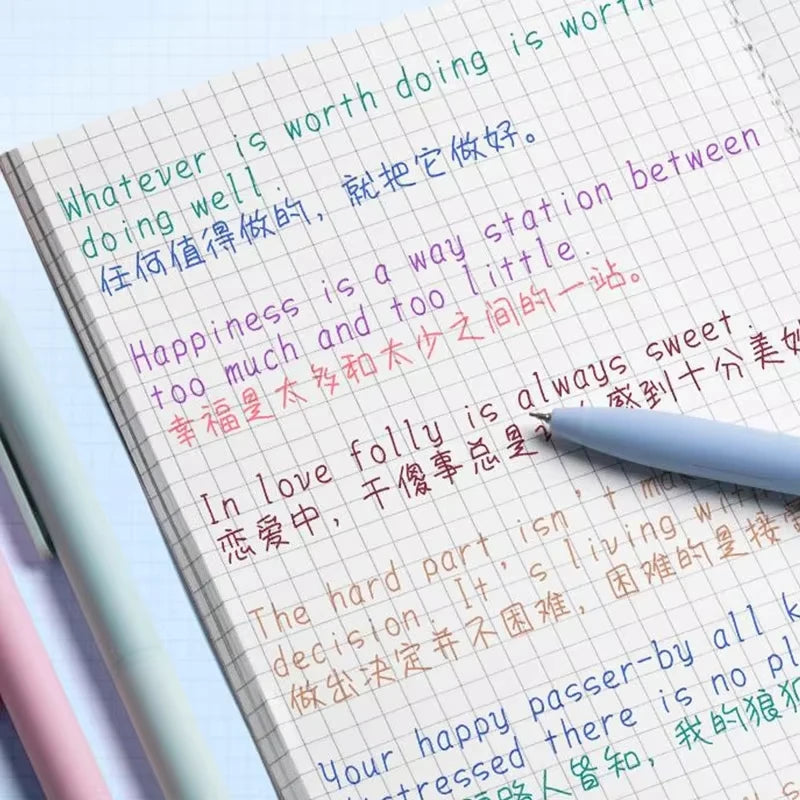 Whatever is worth doing is worth
doing well.
任何值得做的，就把它做好。
Happiness is a way station between
too much and too little.
幸福是太多和太少之间的一站。
In love folly is always sweet.
恋爱中，干傻事总是 感到十分美妙
The hard part isn't
decision. It's living
做出决定并不困难，困难的是接
Your happy passer-by all
distressed there is no
路人皆知，我的狼狈